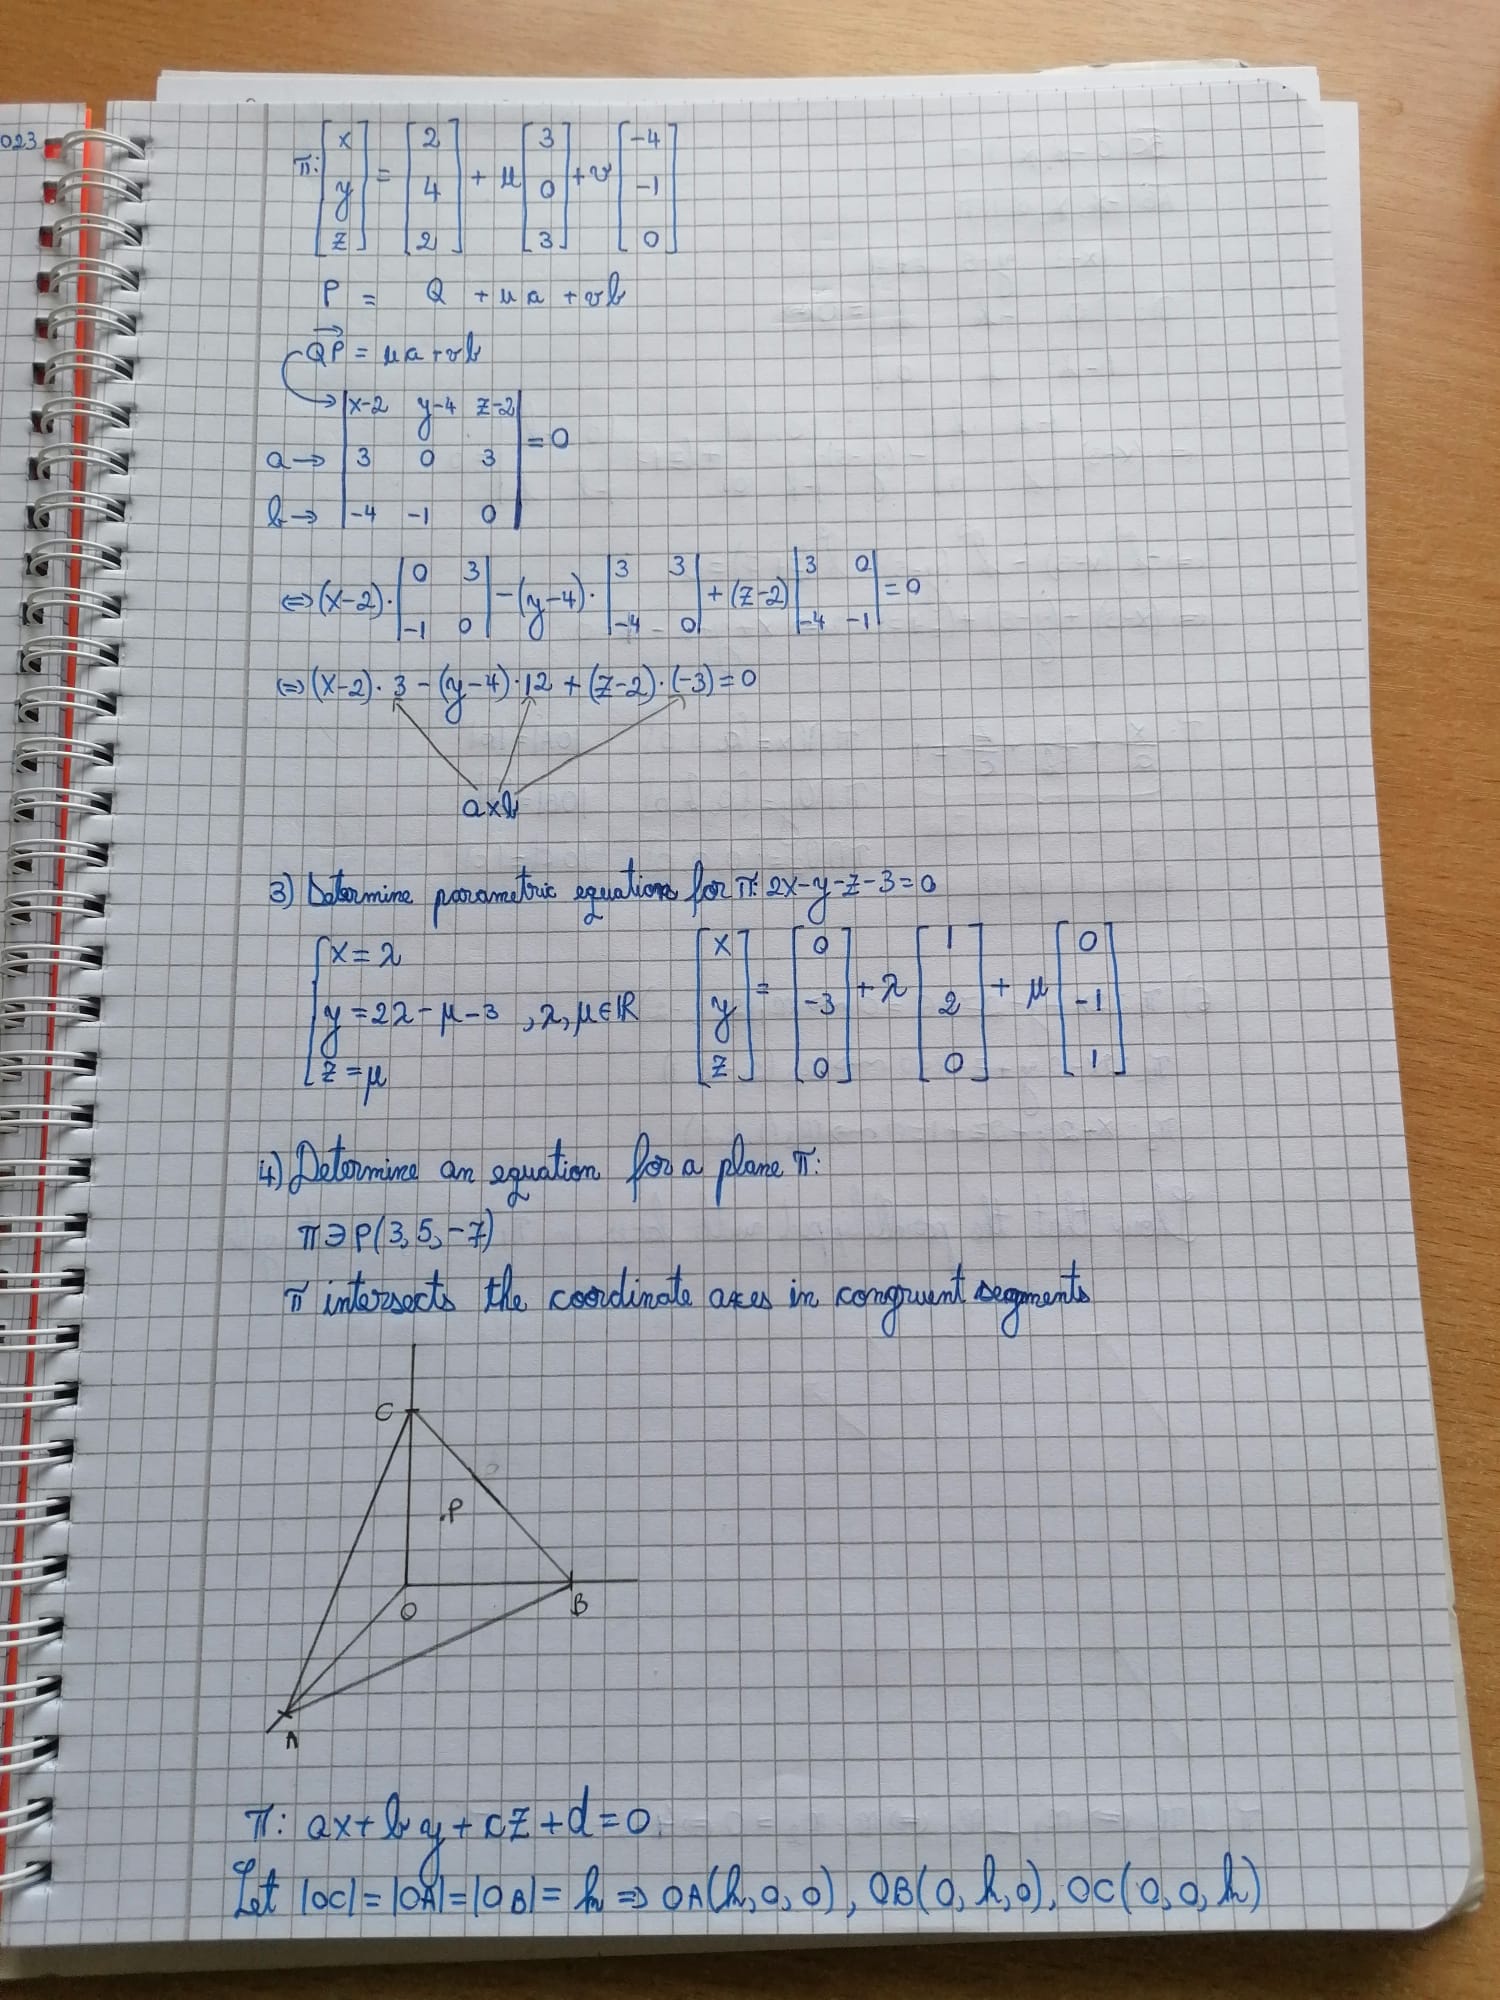 023
π: [x y z] = [2 4 2] + μ [3 0 3] + v [-4 -1 0]
P = Q + μa + vb
QP = μa + vb
|x-2 y-4 z-2|
a → |3 0 3| = 0
b → |-4 -1 0|
⇔ (x-2)· |0 3; -1 0| - (y-4)· |3 3; -4 0| + (z-2) |3 0; -4 -1| = 0
⇔ (x-2)· 3 - (y-4)·12 + (z-2)·(-3) = 0
a×b
3) Determine parametric equations for π: 2x-y-z-3=0
x = λ
y = 2λ - μ - 3 , λ, μ ∈ ℝ
z = μ
[x y z] = [0 -3 0] + λ [1 2 0] + μ [0 -1 1]
4) Determine an equation for a plane π:
π ∋ P(3, 5, -7)
π intersects the coordinate axes in congruent segments
C
.P
O
B
A
π: ax + by + cz + d = 0
Let |OC| = |OA| = |OB| = h ⇒ OA(h, 0, 0), OB(0, h, 0), OC(0, 0, h)